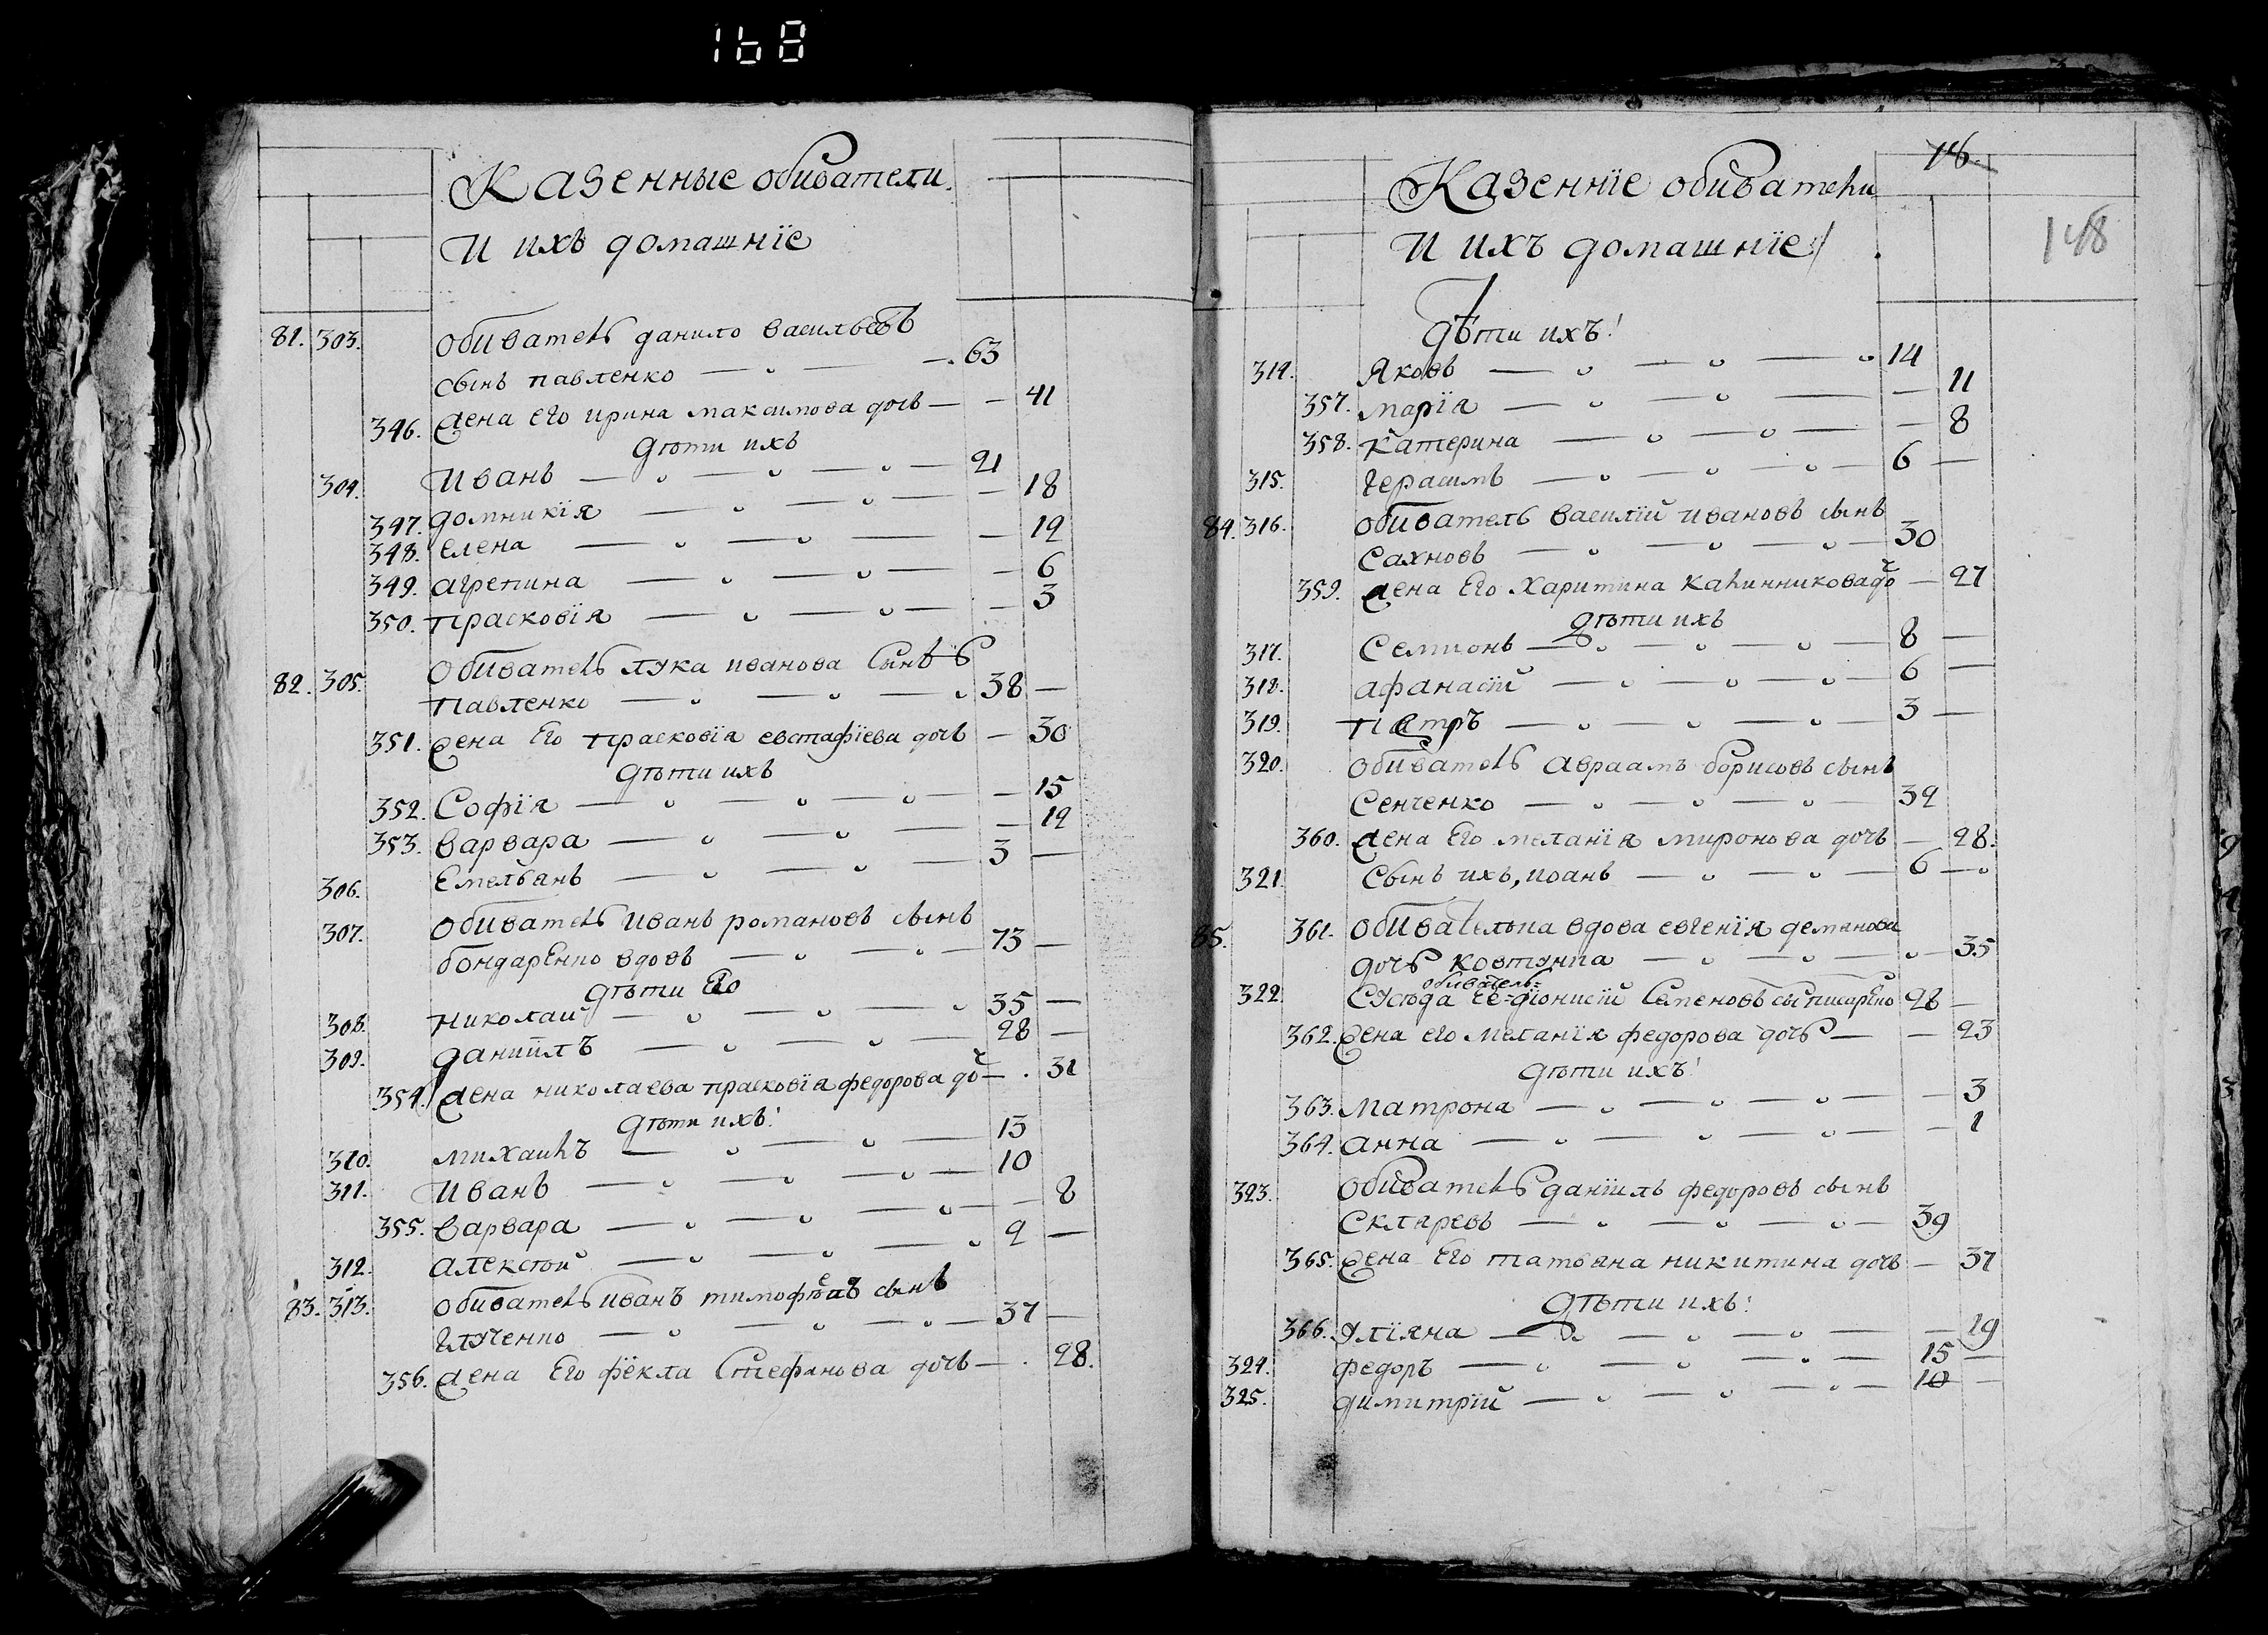 168
Казенные обиватели
И ихъ домашніе
81. 303. обиватель данило васильевъ
сынъ павленко — 63
346. жена его ирина максимова дочь — 41
дѣти ихъ
304. Иванъ — 21
347. домникія — 18
348. елена — 12
349. агрепина — 6
350. прасковія — 3
82. 305. обиватель лука иванова сынъ
павленко — 38 —
351. жена Его прасковія евстафіева дочь — 30
дѣти ихъ
352. Софія — 15
353. варвара — 12
306. Емельянъ — 3 —
307. обиватель иванъ романовъ сынъ
бондаренко вдовъ — 73 —
дѣти Его
308. николай — 35 —
309. даниилъ — 28 —
354. жена николаева прасковія федорова до ч — 31
дѣти ихъ:
310. михаилъ — 13
311. Иванъ — 10
355. варвара — 8
312. алексѣй — 2 —
83. 313. обиватель иванъ тимофѣевъ сынъ
— 37 —
356. жена Его фекла Стефанова дочь — 28.
146.
148
Казенніе обиватели
И ихъ домашніе
дѣти ихъ:
314. Яковъ — 14
357. марія — 11
358. катерина — 8
315. герасимъ — 6 —
84. 316. обиватель василій ивановъ сынъ
Сахновъ — 30
359. жена Его Харитина калинникова до ч — 27
дѣти ихъ
317. Семионъ — 8 —
318. афанасій — 6 —
319. Петръ — 3 —
320. обиватель авраамъ борисовъ сынъ
Сенченко — 32
360. жена Его меланія миронова дочь — 28.
321. Сынъ ихъ, иоанъ — 6 —
85. 361. обивателька вдова евгенія деманова
дочь ковтунка — 35
обиватель=
322. Сусѣда Ее=діонисій Семеновъ сы писаренко 28 —
362. жена его меланія федорова дочь — 23
дѣти ихъ:
363. матрона — 3
364. анна — 1
323. обиватель даніилъ федоровъ сынъ
Скляревъ — 39
365. жена Его татьяна никитина дочь — 37
дѣти ихъ:
366. Уліяна — 19
324. федоръ — 15 —
325. димитрій — 10 —